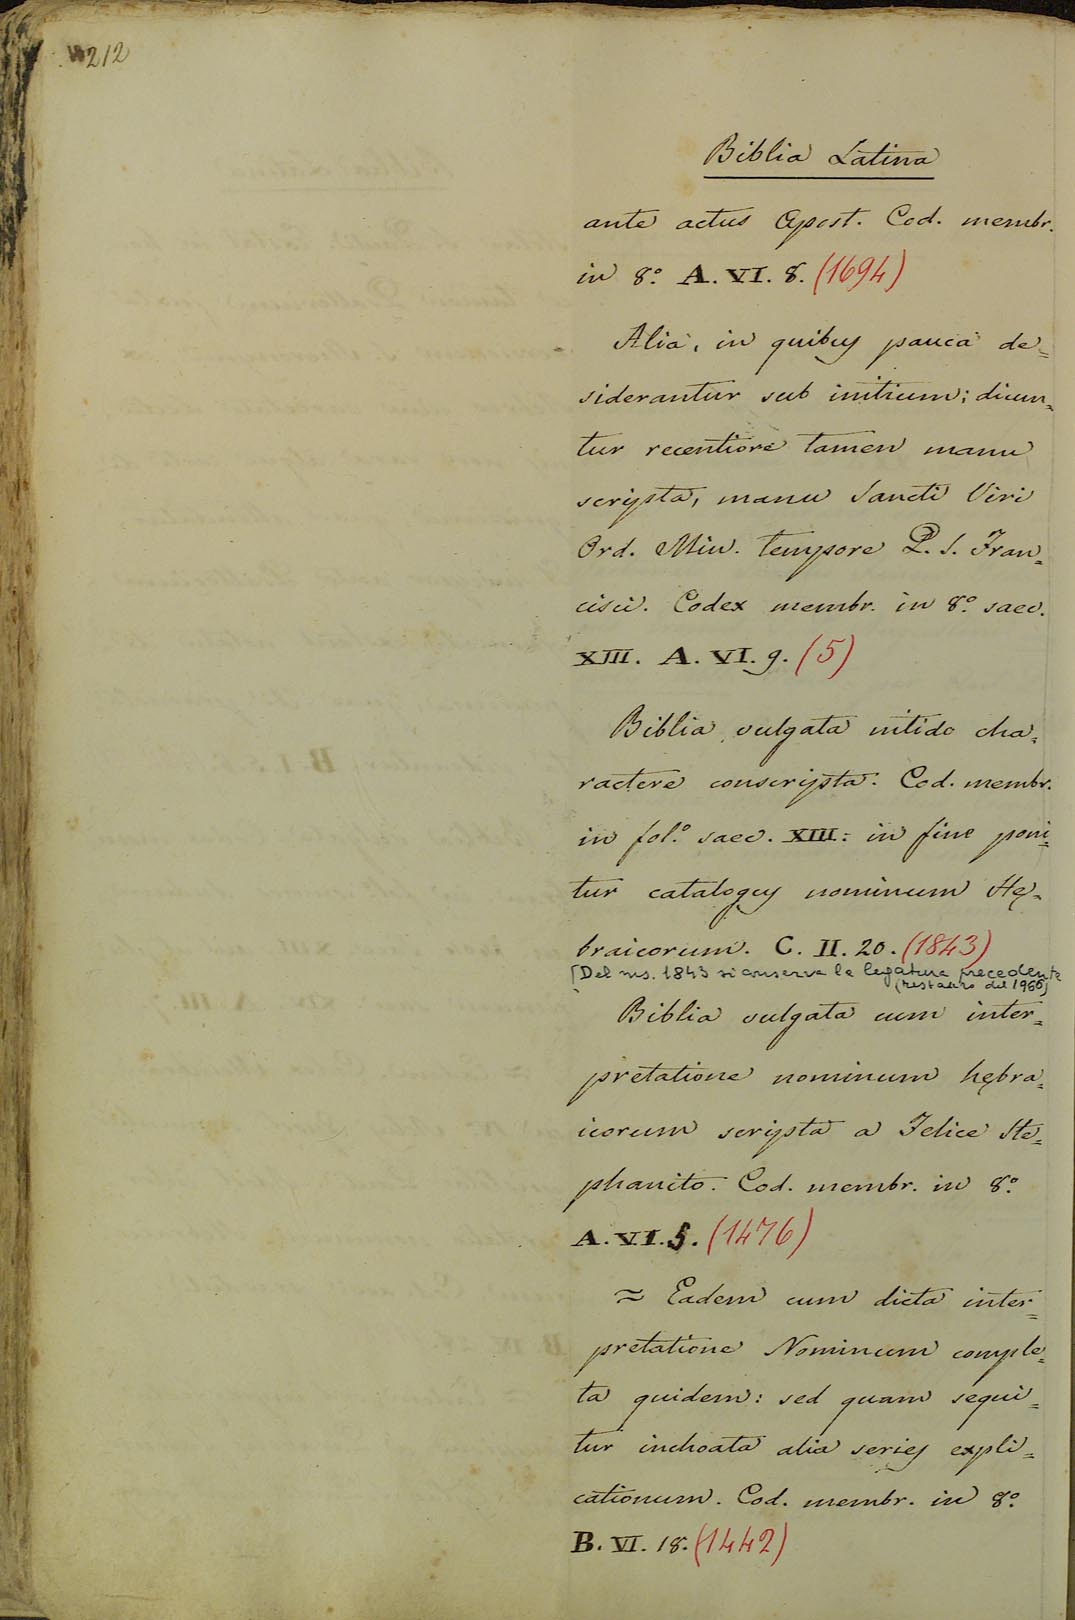 212
Biblia Latina
ante actus Apost. Cod. membr.
in 8.o A. VI. 8. (1694)
Alia, in quibus pauca de=
siderantur sub initium; dicun=
tur recentiore tamen manu
scripta, manu Sancti Viri
Ord. Min. tempore P. S. Fran=
cisci. Codex membr. in 8.o saec.
XIII. A. VI. 9. (5)
Biblia vulgata nitido cha=
ractere conscripta. Cod. membr.
in fol.o saec. XIII: in fine poni=
tur catalogus nominum Hę=
braicorum. C. II. 20. (1843)
[Del ms. 1843 si conserva la legatura precedente
(restauro del 1966)]
Biblia vulgata cum inter=
pretatione nominum hębra=
icorum scripta a Felice Ste=
phanito. Cod. membr. in 8.o
A. VI. 5. (1476)
≈ Eadem cum dicta inter=
pretatione Nominum comple=
ta quidem: sed quam sequi=
tur inchoata alia series expli=
cationum. Cod. membr. in 8.o
B. VI. 18. (1442)